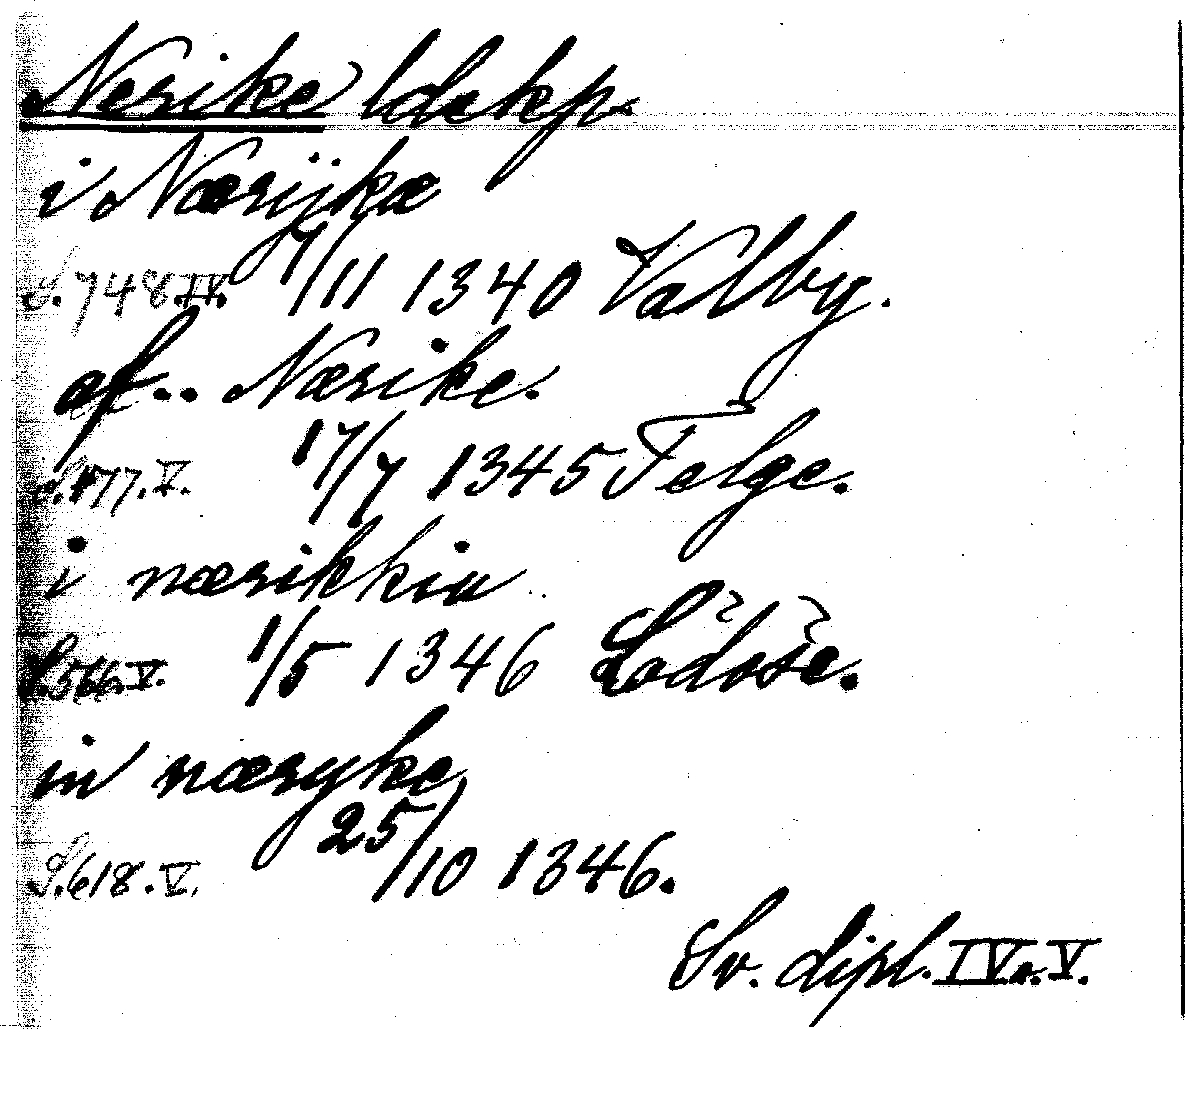 Nerike ldskp.
i Nærijkæ
S. 748. IV. 7/11 1340 Valby.
af.. Nærike.
S. 477. V. 17/7 1345 Telge.
i nærikkiu
S. 566. V. 1/5 1346 Lödöse.
in næryke
S. 618. V. 25/10 1346.
Sv. dipl. IV o. V.